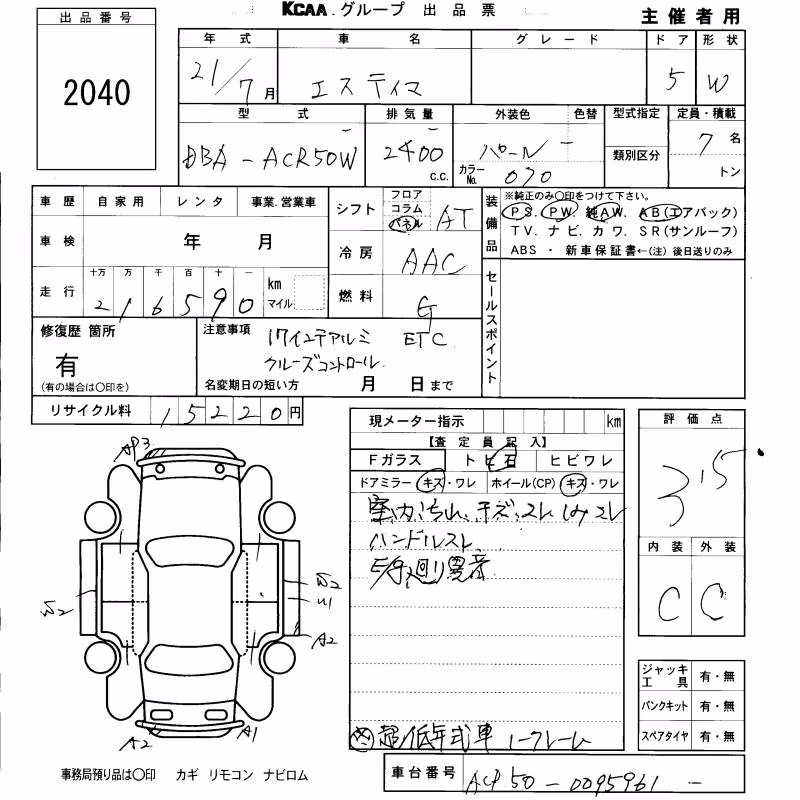 KCAA.グループ 出品票
主催者用
出品番号
2040
年式 車名 グレード ドア 形状
21/7月 エスティマ 5 W
型式 排気量 外装色 色替 型式指定 定員・積載
DBA-ACR50W 2400 c.c. パール 7名
カラーNo. 070 類別区分 トン
車歴 自家用 レンタ 事業.営業車
シフト フロア コラム パネル AT
装備品 ※純正のみ○印をつけて下さい。
PS. PW. 純AW. AB(エアバック)
TV. ナビ. カワ. SR(サンルーフ)
ABS ・ 新車保証書←(注)後日送りのみ
車検 年 月
冷房 AAC
走行 十万 万 千 百 十 一 km マイル
216590
燃料 G
セールスポイント
修復歴 箇所
有
(有の場合は○印を)
注意事項 17インチアルミ ETC
クルーズコントロール
名変期日の短い方 月 日まで
リサイクル料 15220円
現メーター指示 km
【査定員記入】
Fガラス ト 石 ヒビワレ
ドアミラー キズ・ワレ ホイール(CP) キズ・ワレ
室内汚れ、キズ、スレ シミ コレ
ハンドルスレ
異音
超低年式車 ノークレーム
評価点
3.5
内装 外装
C C
ジャッキ工具 有・無
パンクキット 有・無
スペアタイヤ 有・無
AP3
W2
W2
U1
A2
A2
A1
事務局預り品は○印 カギ リモコン ナビロム
車台番号 ACR50-0095961